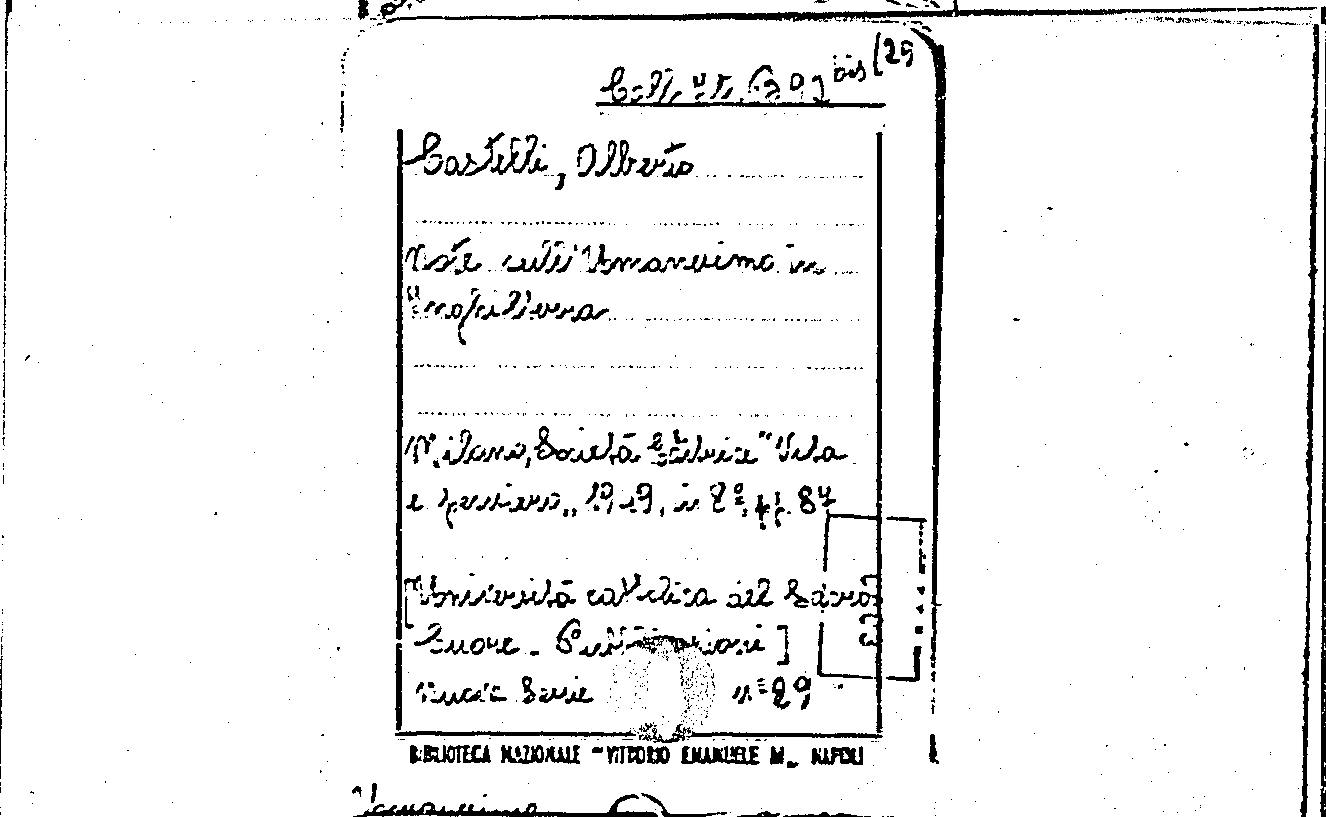 Coll. it. 391 bis (29
Castelli, Alberto
Note sull'Umanesimo in
Inghilterra
Milano, Società Editrice "Vita
e pensiero,, 1949, in 8º, pp. 87
[Università cattolica del Sacro
Cuore - Pubblicazioni]
Nuova Serie nº 29
BIBLIOTECA NAZIONALE "VITTORIO EMANUELE III,, NAPOLI
Umanesimo